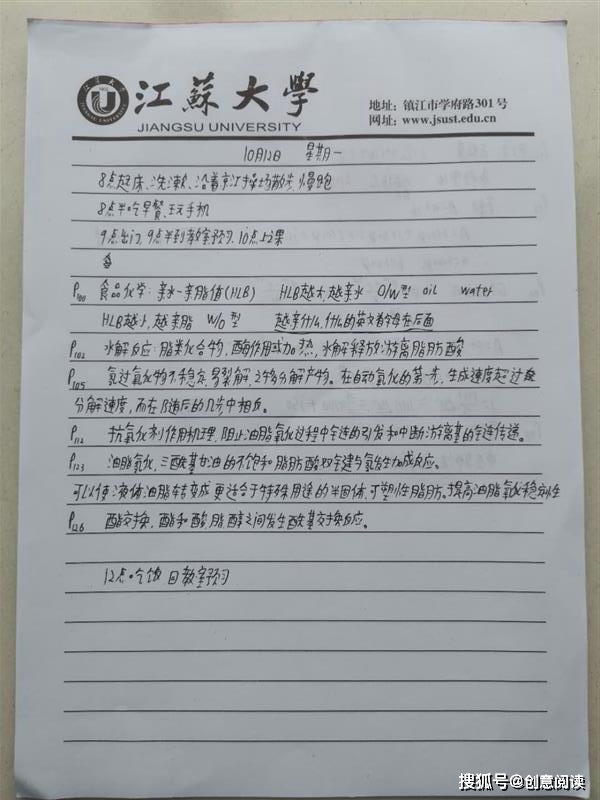 江蘇大學
JIANGSU UNIVERSITY
地址：镇江市学府路301号
网址：www.jsust.edu.cn
10月12日 星期一
8点起床、洗漱、沿着京江操场散步、慢跑
8点半吃早餐、玩手机
9点出门，9点半到教室预习，10点上课
P100 食品化学：亲水-亲脂值(HLB) HLB越大，越亲水 O/W型 oil water
HLB越小，越亲脂 W/O型 越亲什么，什么的英文首字母在后面
P102 水解反应：脂类化合物，酶作用或加热，水解释放游离脂肪酸
P105 氢过氧化物不稳定，易裂解，产生多分解产物。在自动氧化的第一步，生成速度超过
分解速度，而在随后的几步中相反。
P112 抗氧化剂作用机理，阻止油脂氧化过程中链的引发和中断游离基的链传递。
P123 油脂氢化，三酰基甘油的不饱和脂肪酸双键与氢发生加成反应。
可以使液体油脂转变成更适合于特殊用途的半固体、可塑性脂肪。提高油脂氧化稳定性
P126 酯交换，酯和酸、脂、醇之间发生酰基交换反应。
12点吃饭 回教室预习
搜狐号@创意阅读